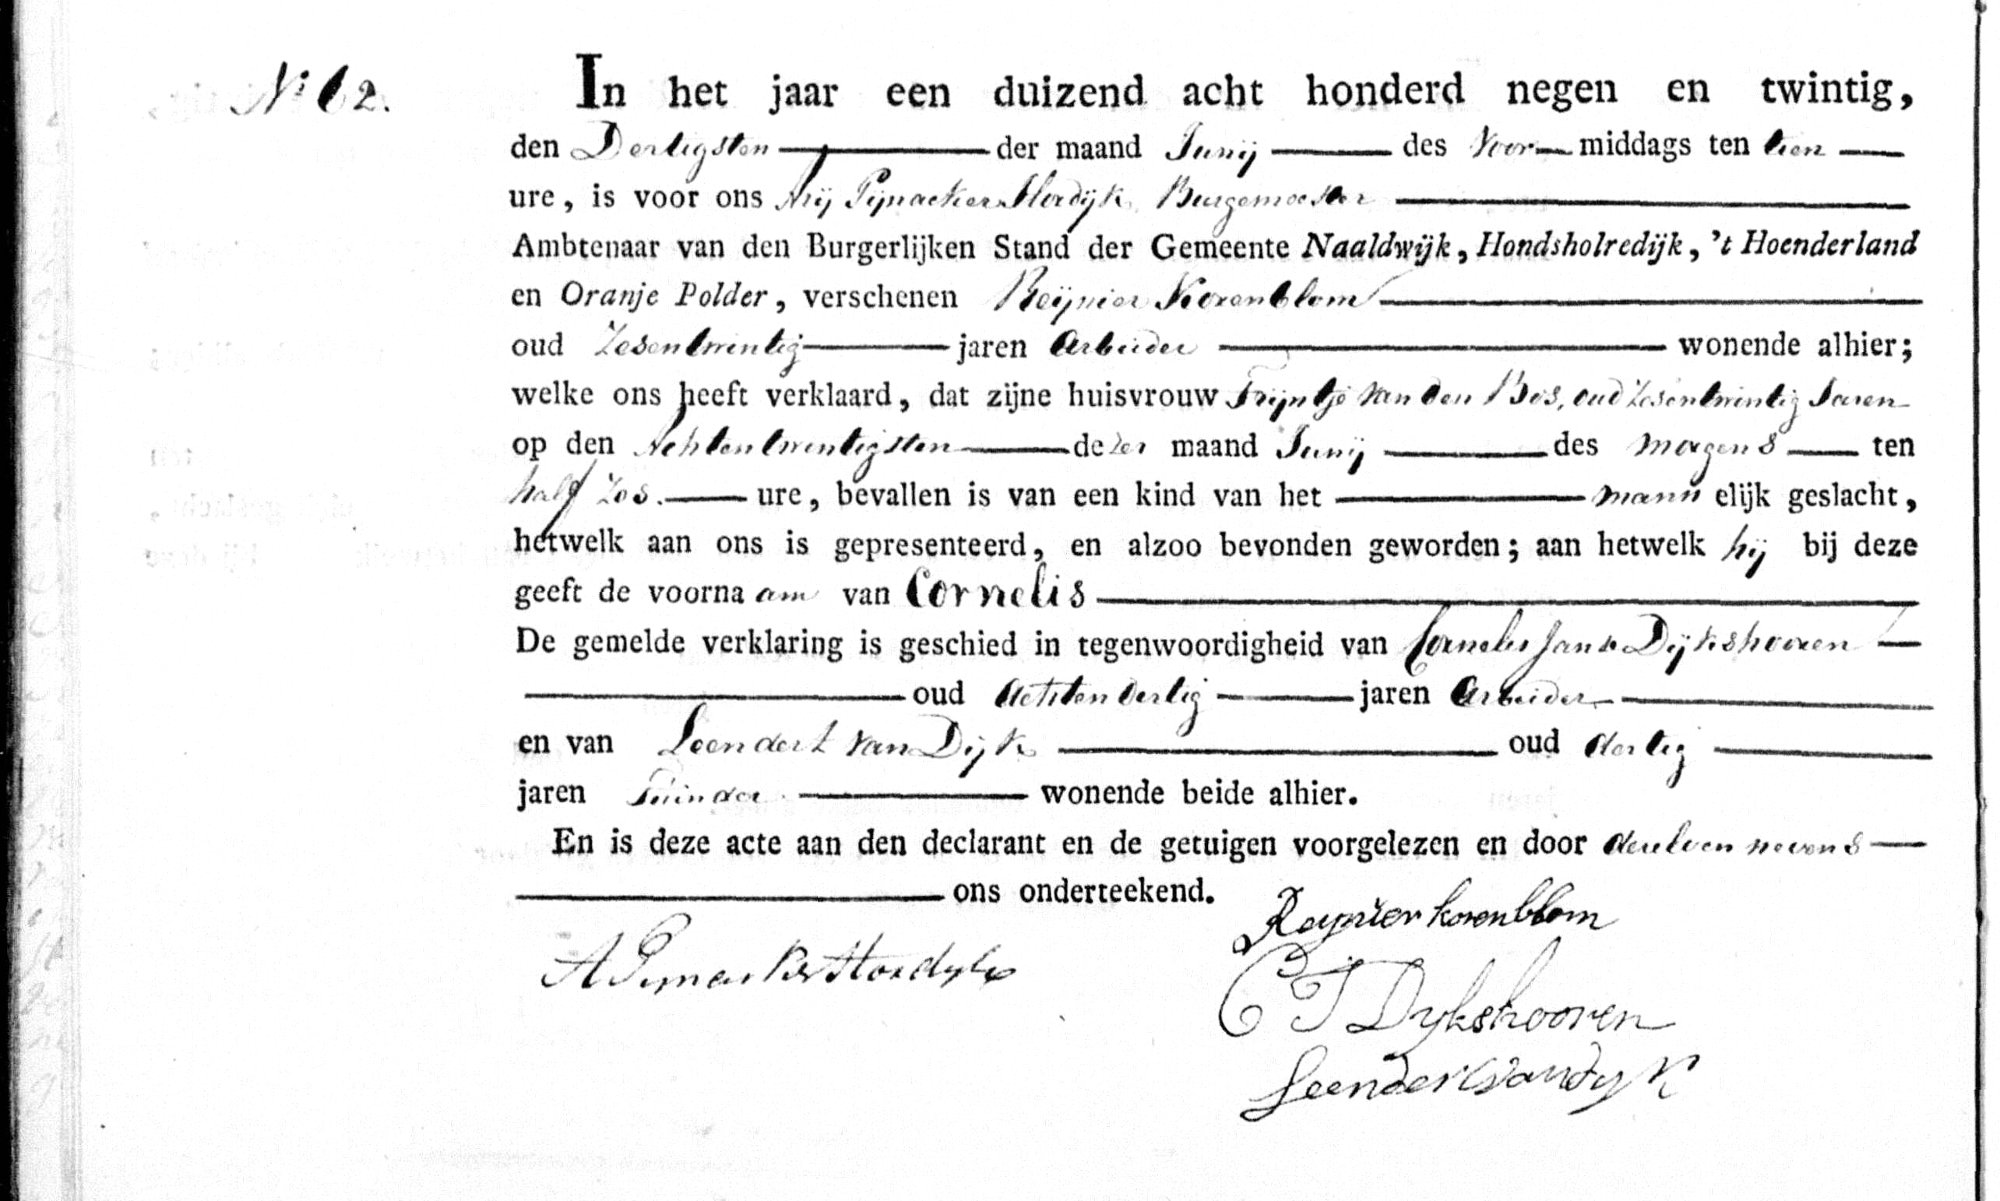 N: 62.
In het jaar een duizend acht honderd negen en twintig,
den Dertigsten der maand Junij des Voor middags ten tien
ure, is voor ons Arij Pijnacker Hordijk Burgemeester
Ambtenaar van den Burgerlijken Stand der Gemeente Naaldwijk, Hondsholredijk, 't Hoenderland
en Oranje Polder, verschenen Reijnier Korenblom
oud Zesentwintig jaren Arbeider wonende alhier;
welke ons heeft verklaard, dat zijne huisvrouw Trijntje van den Bos, oud Zesentwintig Jaren
op den Achtentwintigsten dezer maand Junij des morgens ten
half Zes. ure, bevallen is van een kind van het mann elijk geslacht,
hetwelk aan ons is gepresenteerd, en alzoo bevonden geworden; aan hetwelk hij bij deze
geeft de voorna am van Cornelis
De gemelde verklaring is geschied in tegenwoordigheid van Cornelis Jansz Dijkshooren
oud Achtendertig jaren Arbeider
en van Leendert van Dijk oud dertig
jaren Tuinder wonende beide alhier.
En is deze acte aan den declarant en de getuigen voorgelezen en door denelven nevens
ons onderteekend.
Reynier korenblom
A Pijnacker Hordijk
C J Dykshooren
Leendert van dyk